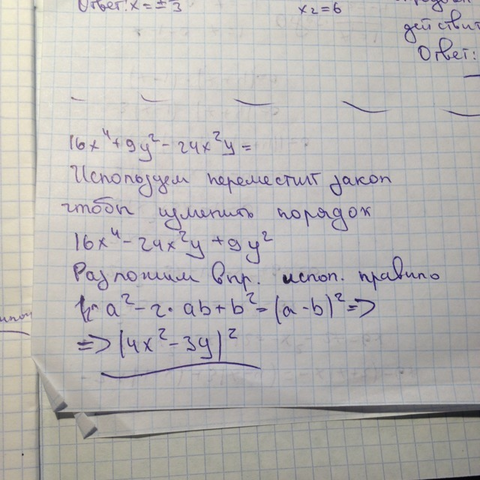 Ответ: x = ± 3
x₂ = 6
действит
Ответ:
16x⁴+9y²-24x²y=
Используем переместит закон
чтобы изменить порядок
16x⁴-24x²y+9y²
Разложим впр. испол. правило
a²-2·ab+b²=(a-b)²=>
=>(4x²-3y)²